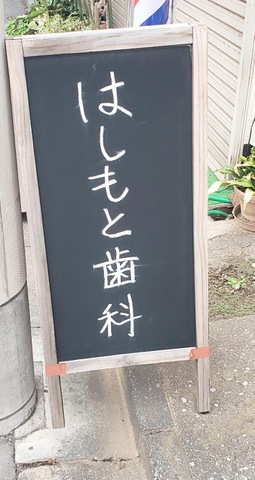 はしもと歯科